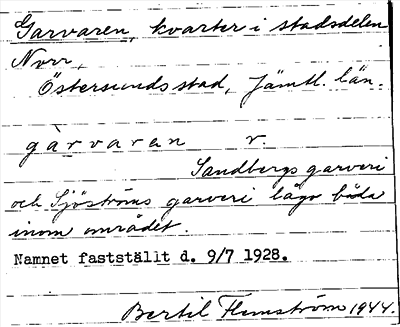 Garvaren, kvarter i stadsdelen
Norr,
Östersunds stad, Jämtl. län.
gàrvaren r.
Sandbergs garveri
och Sjöströms garveri lågo båda
inom området.
Namnet fastställt d. 9/7 1928.
Bertil Flemström 1944.